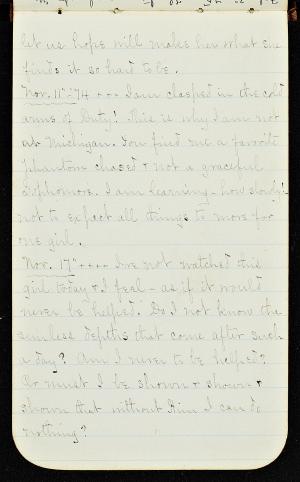 let us hope will make her what she
finds it so hard to be.
Nov. 11" '74 --- I am clasped in the cold
arms of Duty! This is why I am not
at Michigan. You find me a favorite
phantom chased & not a graceful
Sophomore. I am learning - how slowly!
not to expect all things to move for
one girl.
Nov. 17" ---- I've not watched this
girl today & I feel - as if it would
never be helped. Do I not know the
sunless depths that come after such
a day? Am I never to be helped?
Or must I be shown & shown &
shown that without Him I can do
nothing?